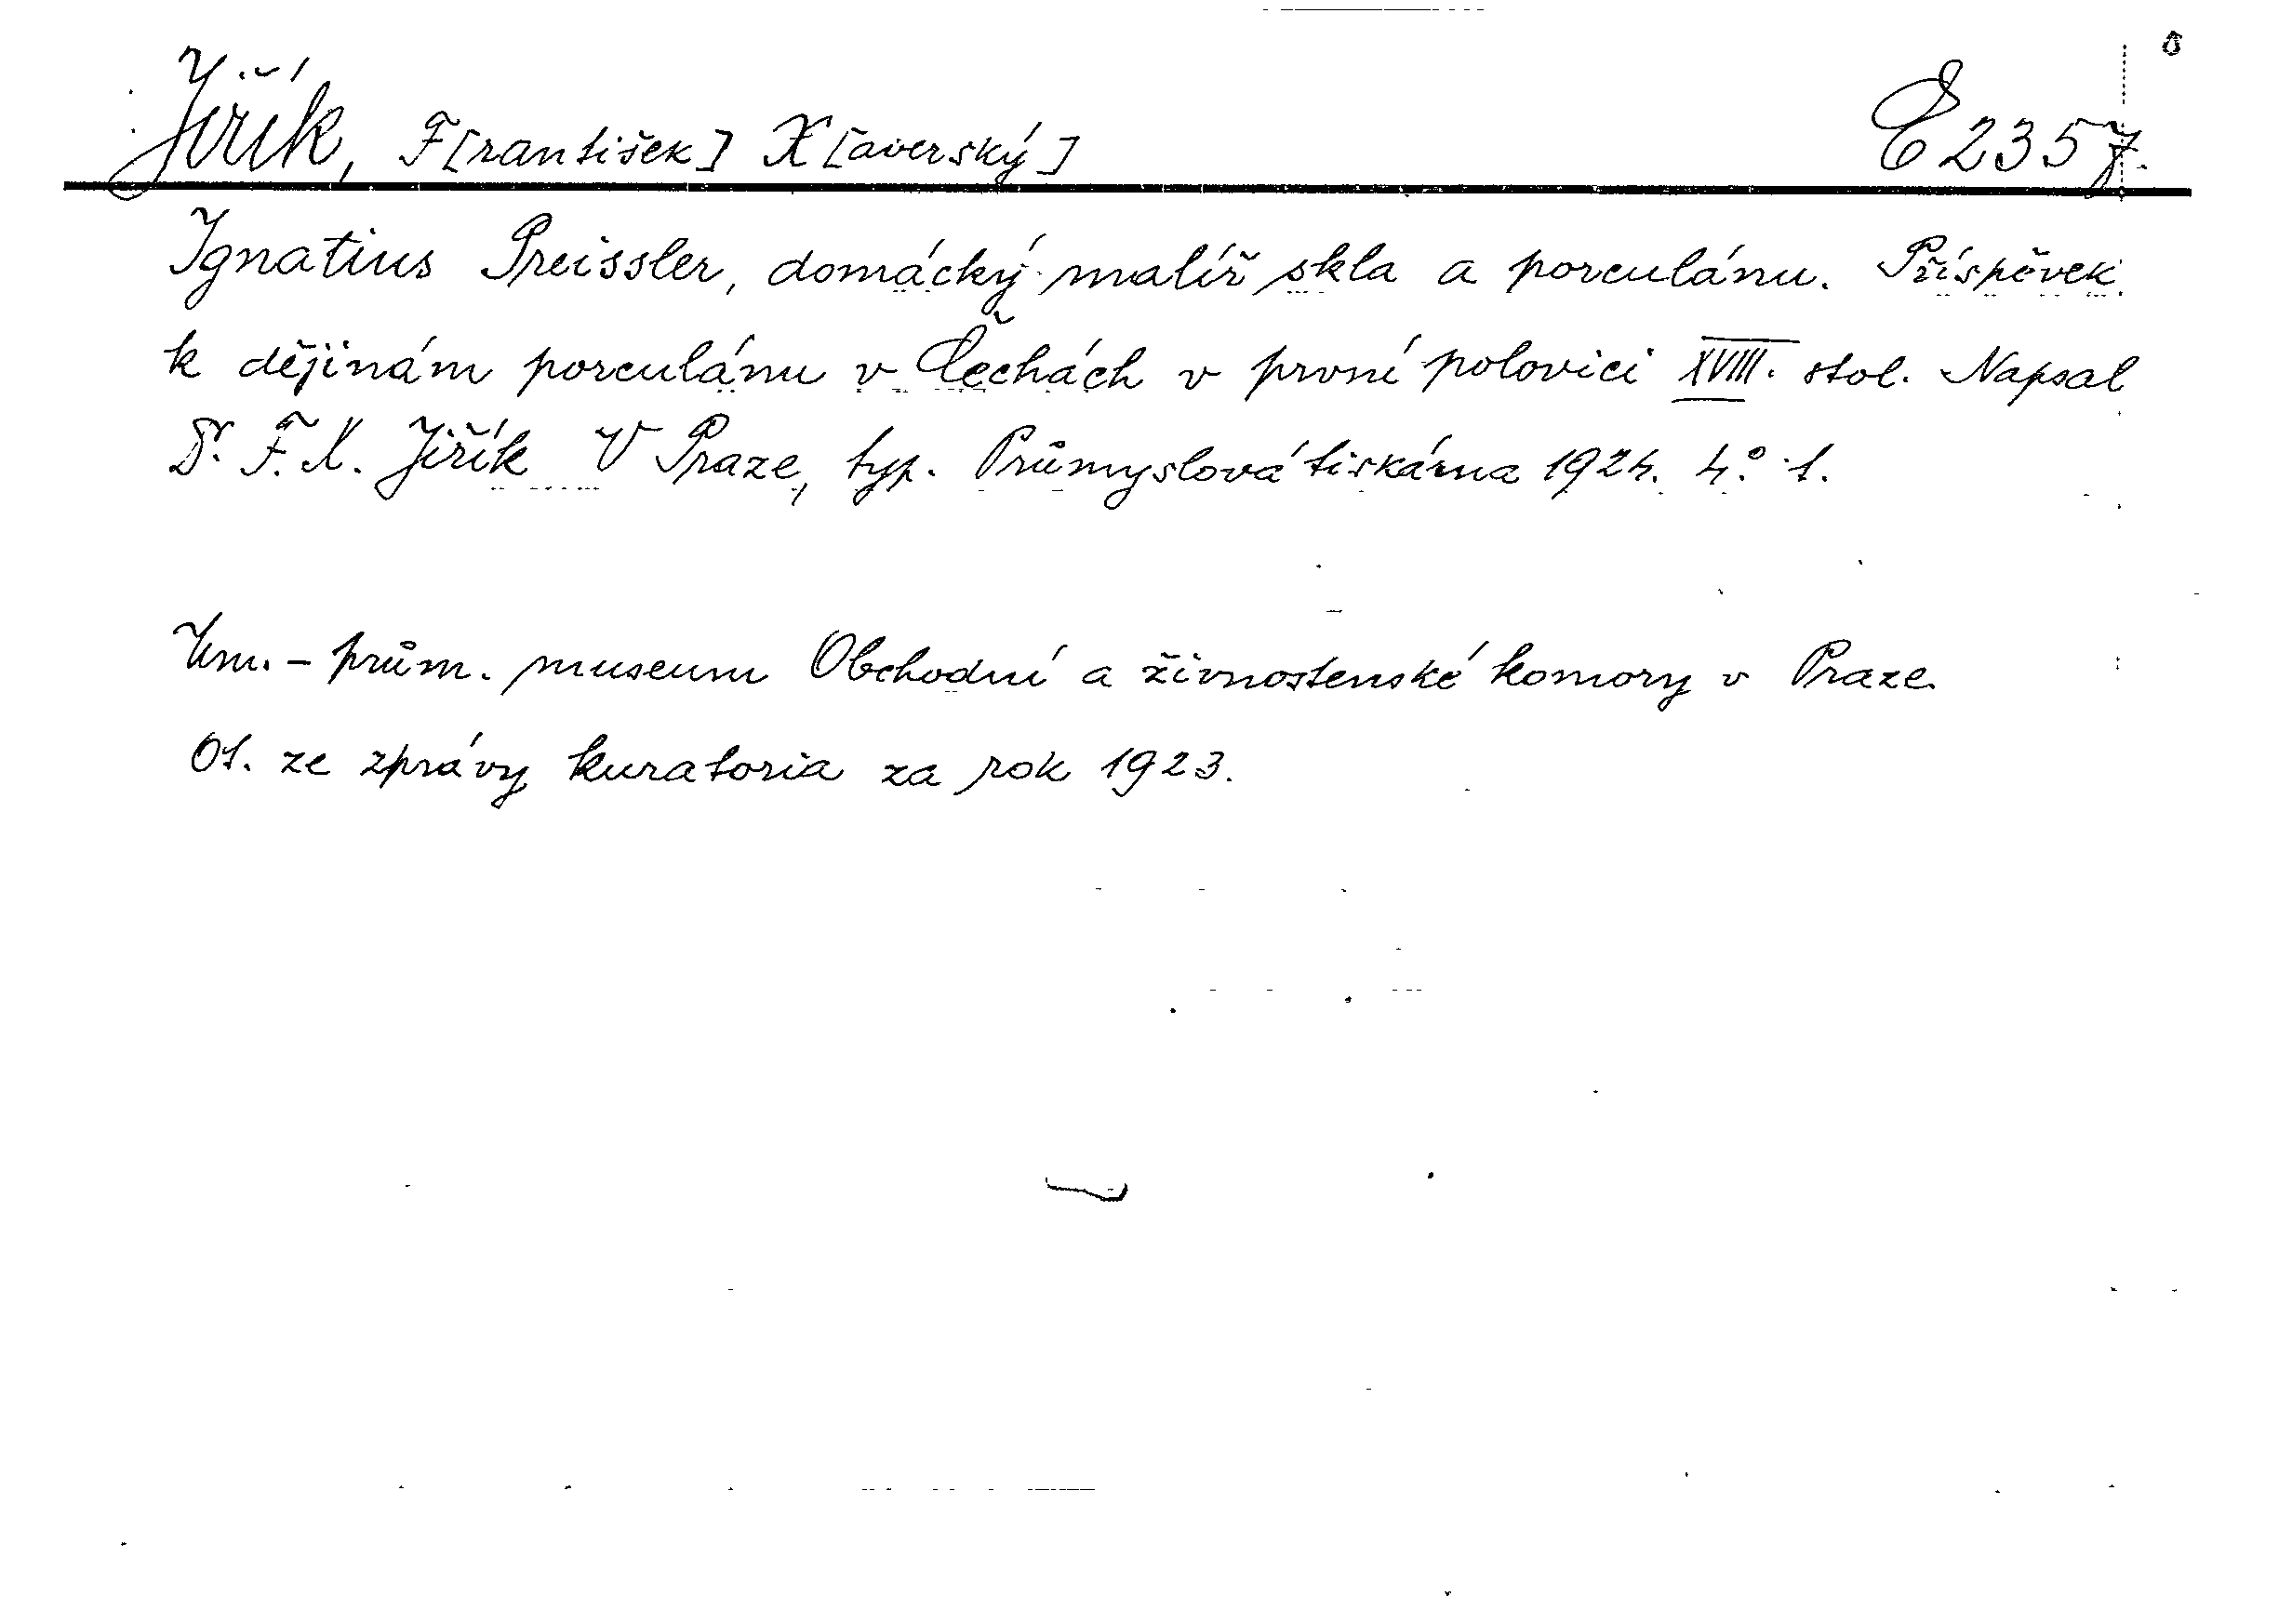 Jiřík, F[rantišek] X[averský] E 2357.
Ignatius Preissler, domácký malíř skla a porculánu. Příspěvek
k dějinám porculánu v Čechách v první polovici XVIII. stol. Napsal
Dr. F. X. Jiřík V Praze, typ. Průmyslová tiskárna 1924. 4.° 1.
Um. - prům. museum Obchodní a živnostenské komory v Praze.
Ot. ze zprávy kuratoria za rok 1923.